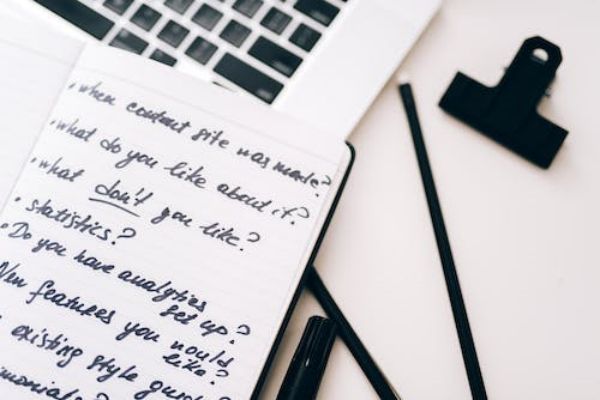 • when content site was made?
• what do you like about it?
• what don't you like?
• statistics?
• Do you have analytics
set up?
New features you would
like?
• existing style guide